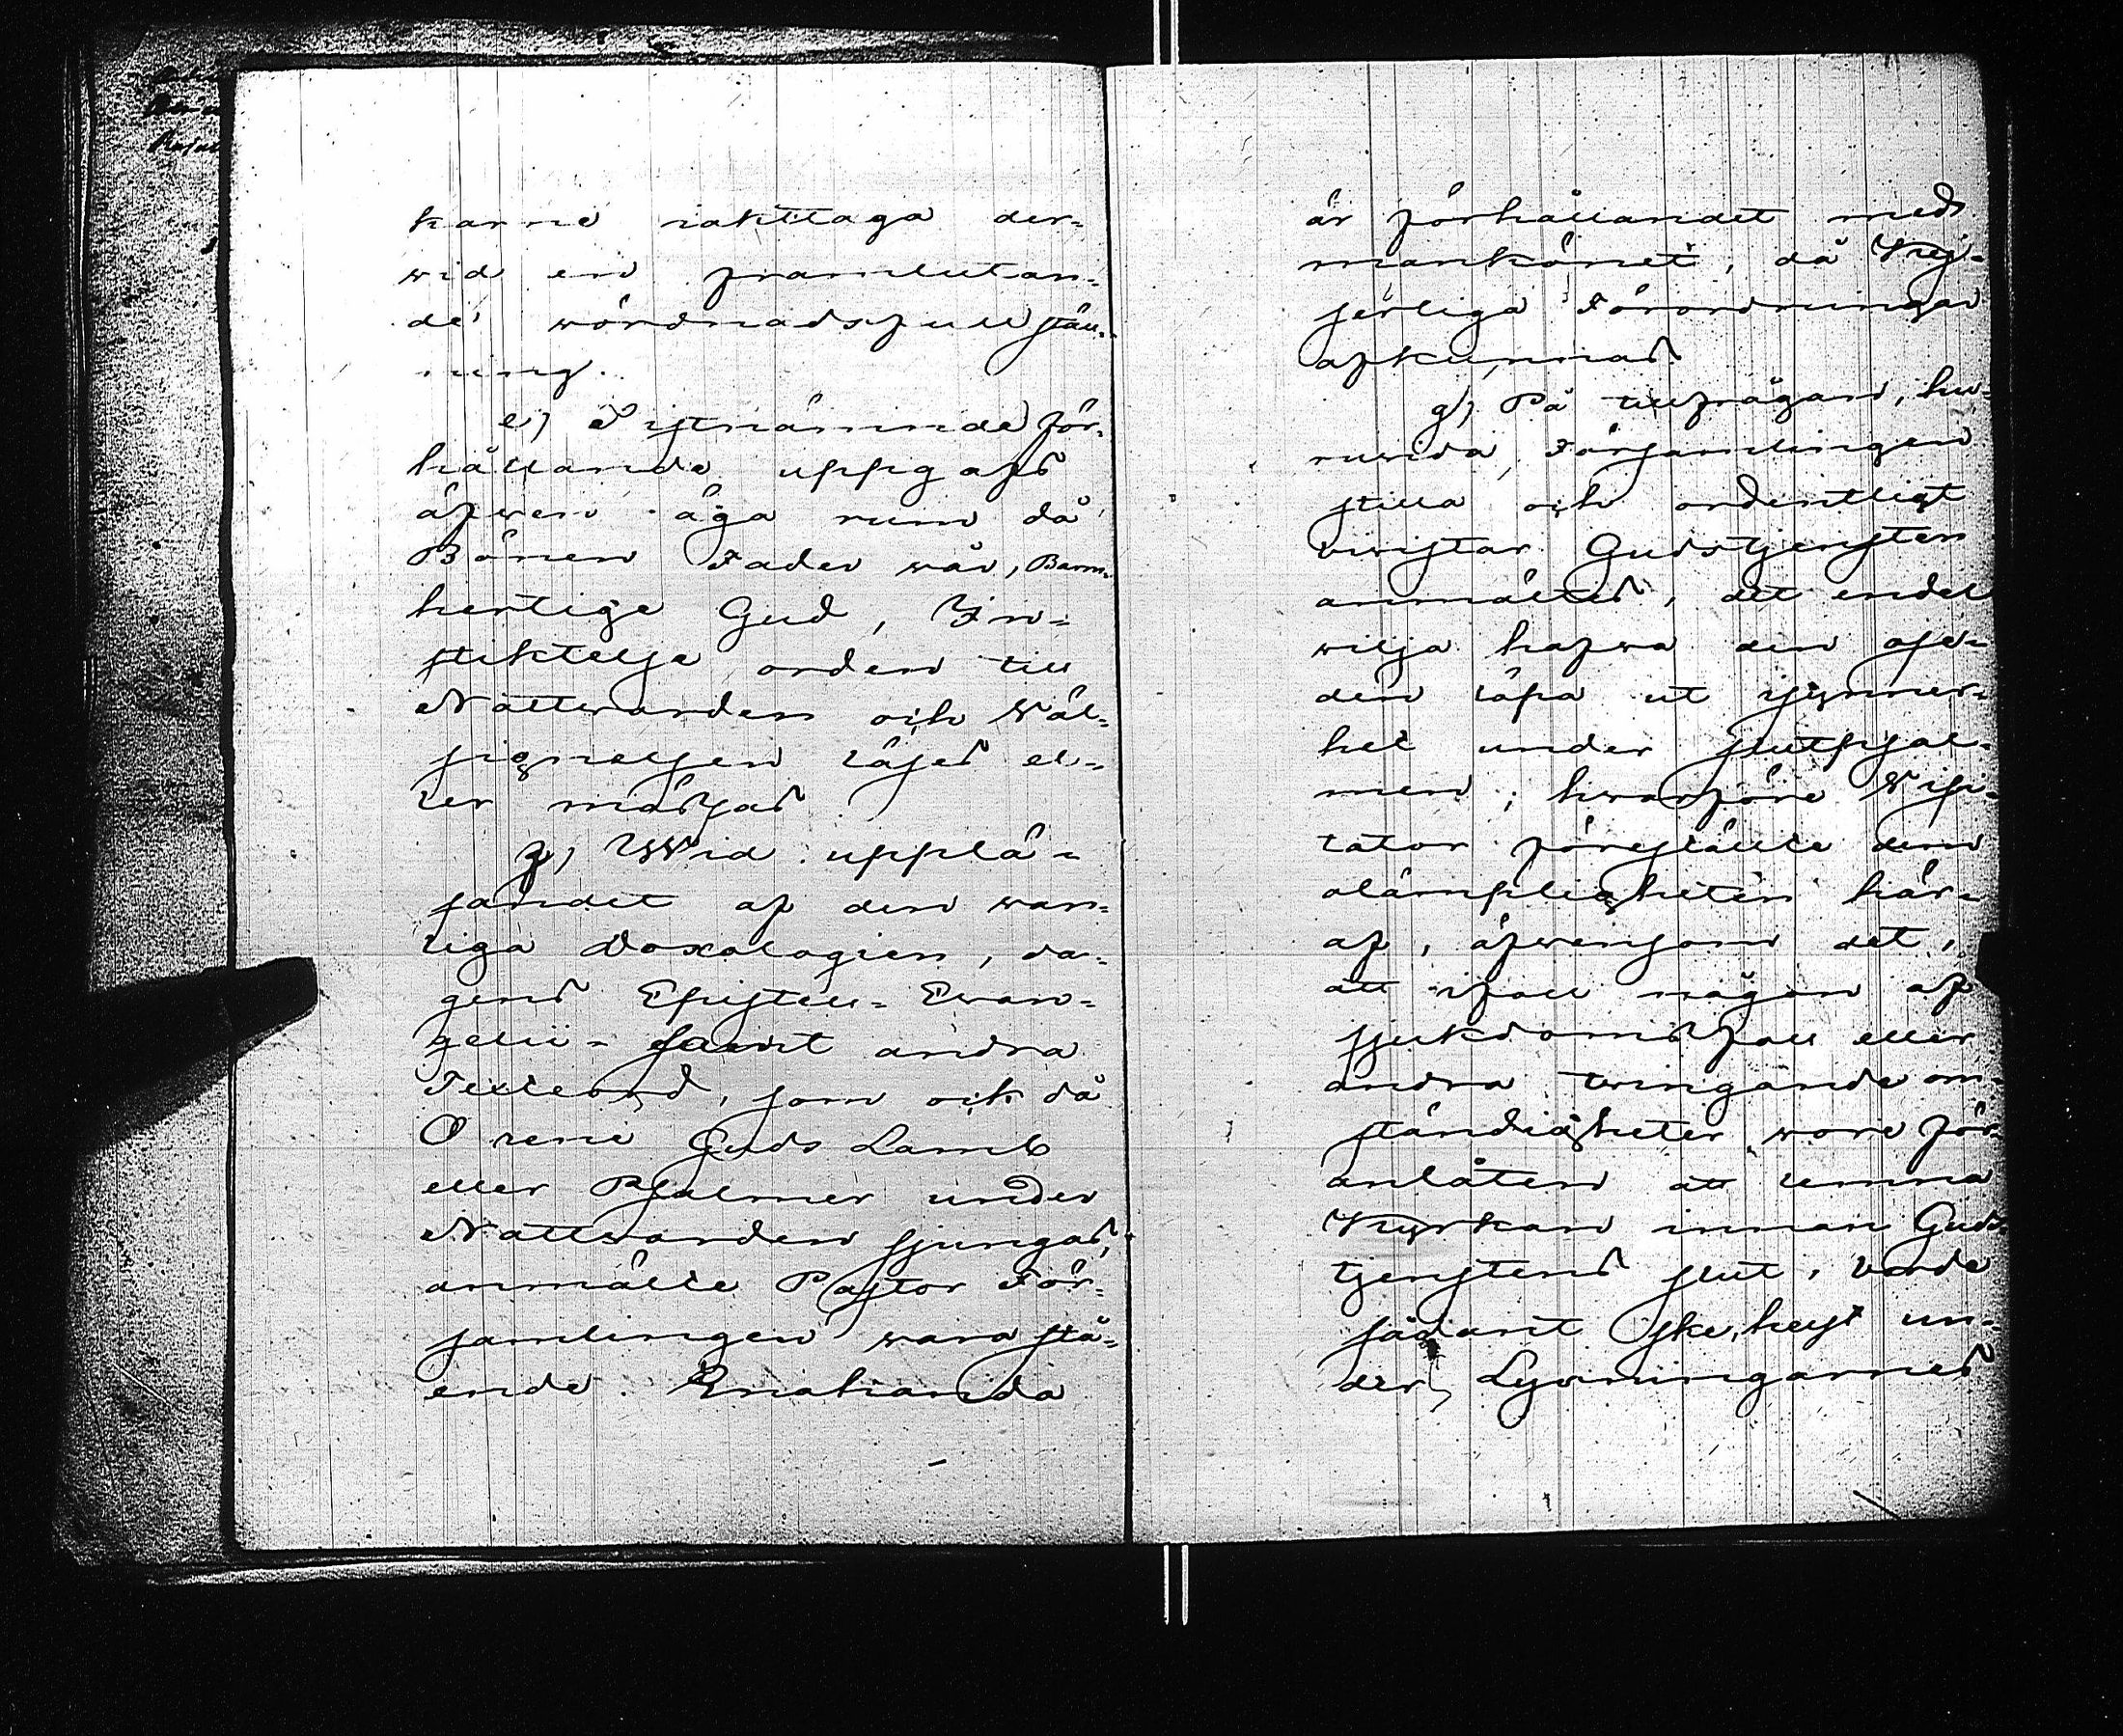 karne iakttaga der-
wid en framlutan-
de wördnadsfull ställ-
ning.
e) Sistnämnde för-
hållande uppgafs
äfwen äga rum då
Bönen Fader wår, Barm-
hertige Gud, In-
stiktelse orden till
Nattwarden och Wäl-
signelsen läses el-
ler mässas
f) Wid upplä-
sandet af den wan-
liga Doxologien, da-
gens Epistell- Ewan-
gelii- samt andra
Texteord, som ock då
O rene Guds Lamb
eller Psalmer under
Nattwarden sjungas,
anmälte Pastor För-
samlingen wara stå-
ende. Enahanda
är förhållandet med
mankönet, då Kej-
serliga Förordningar
afkunnas
g) På tillfrågan, hu-
runda Församlingen
stilla och ordentligt
biwistar Gudstjensten
anmältes, att endel
wilja hafwa den ose-
den löpa ut ymmer-
het under slutpsal-
men; hwarföre Wisi-
tator föreställte dem
olämpligheten här-
af, äfwensom det,
att ifall någon af
sjukdomsfall eller
andra twingande om-
ständigheter wore för-
anlåten att lemna
Kyrkan innan Guds-
tjenstens slut, borde
sådant ske, helst un-
der Lysningarnes